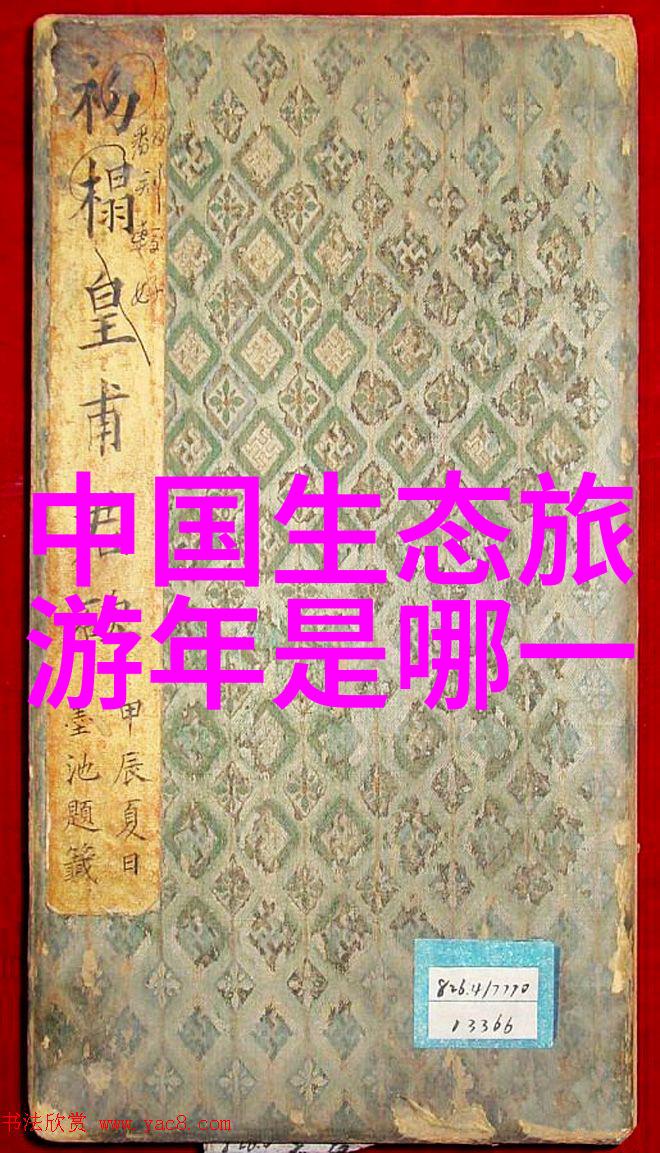 初榻皇甫君碑
甲辰夏日
墨池題籤
中国生态旅
游年是哪一
826.4/7770
13366
书法欣赏 www.yac8.com